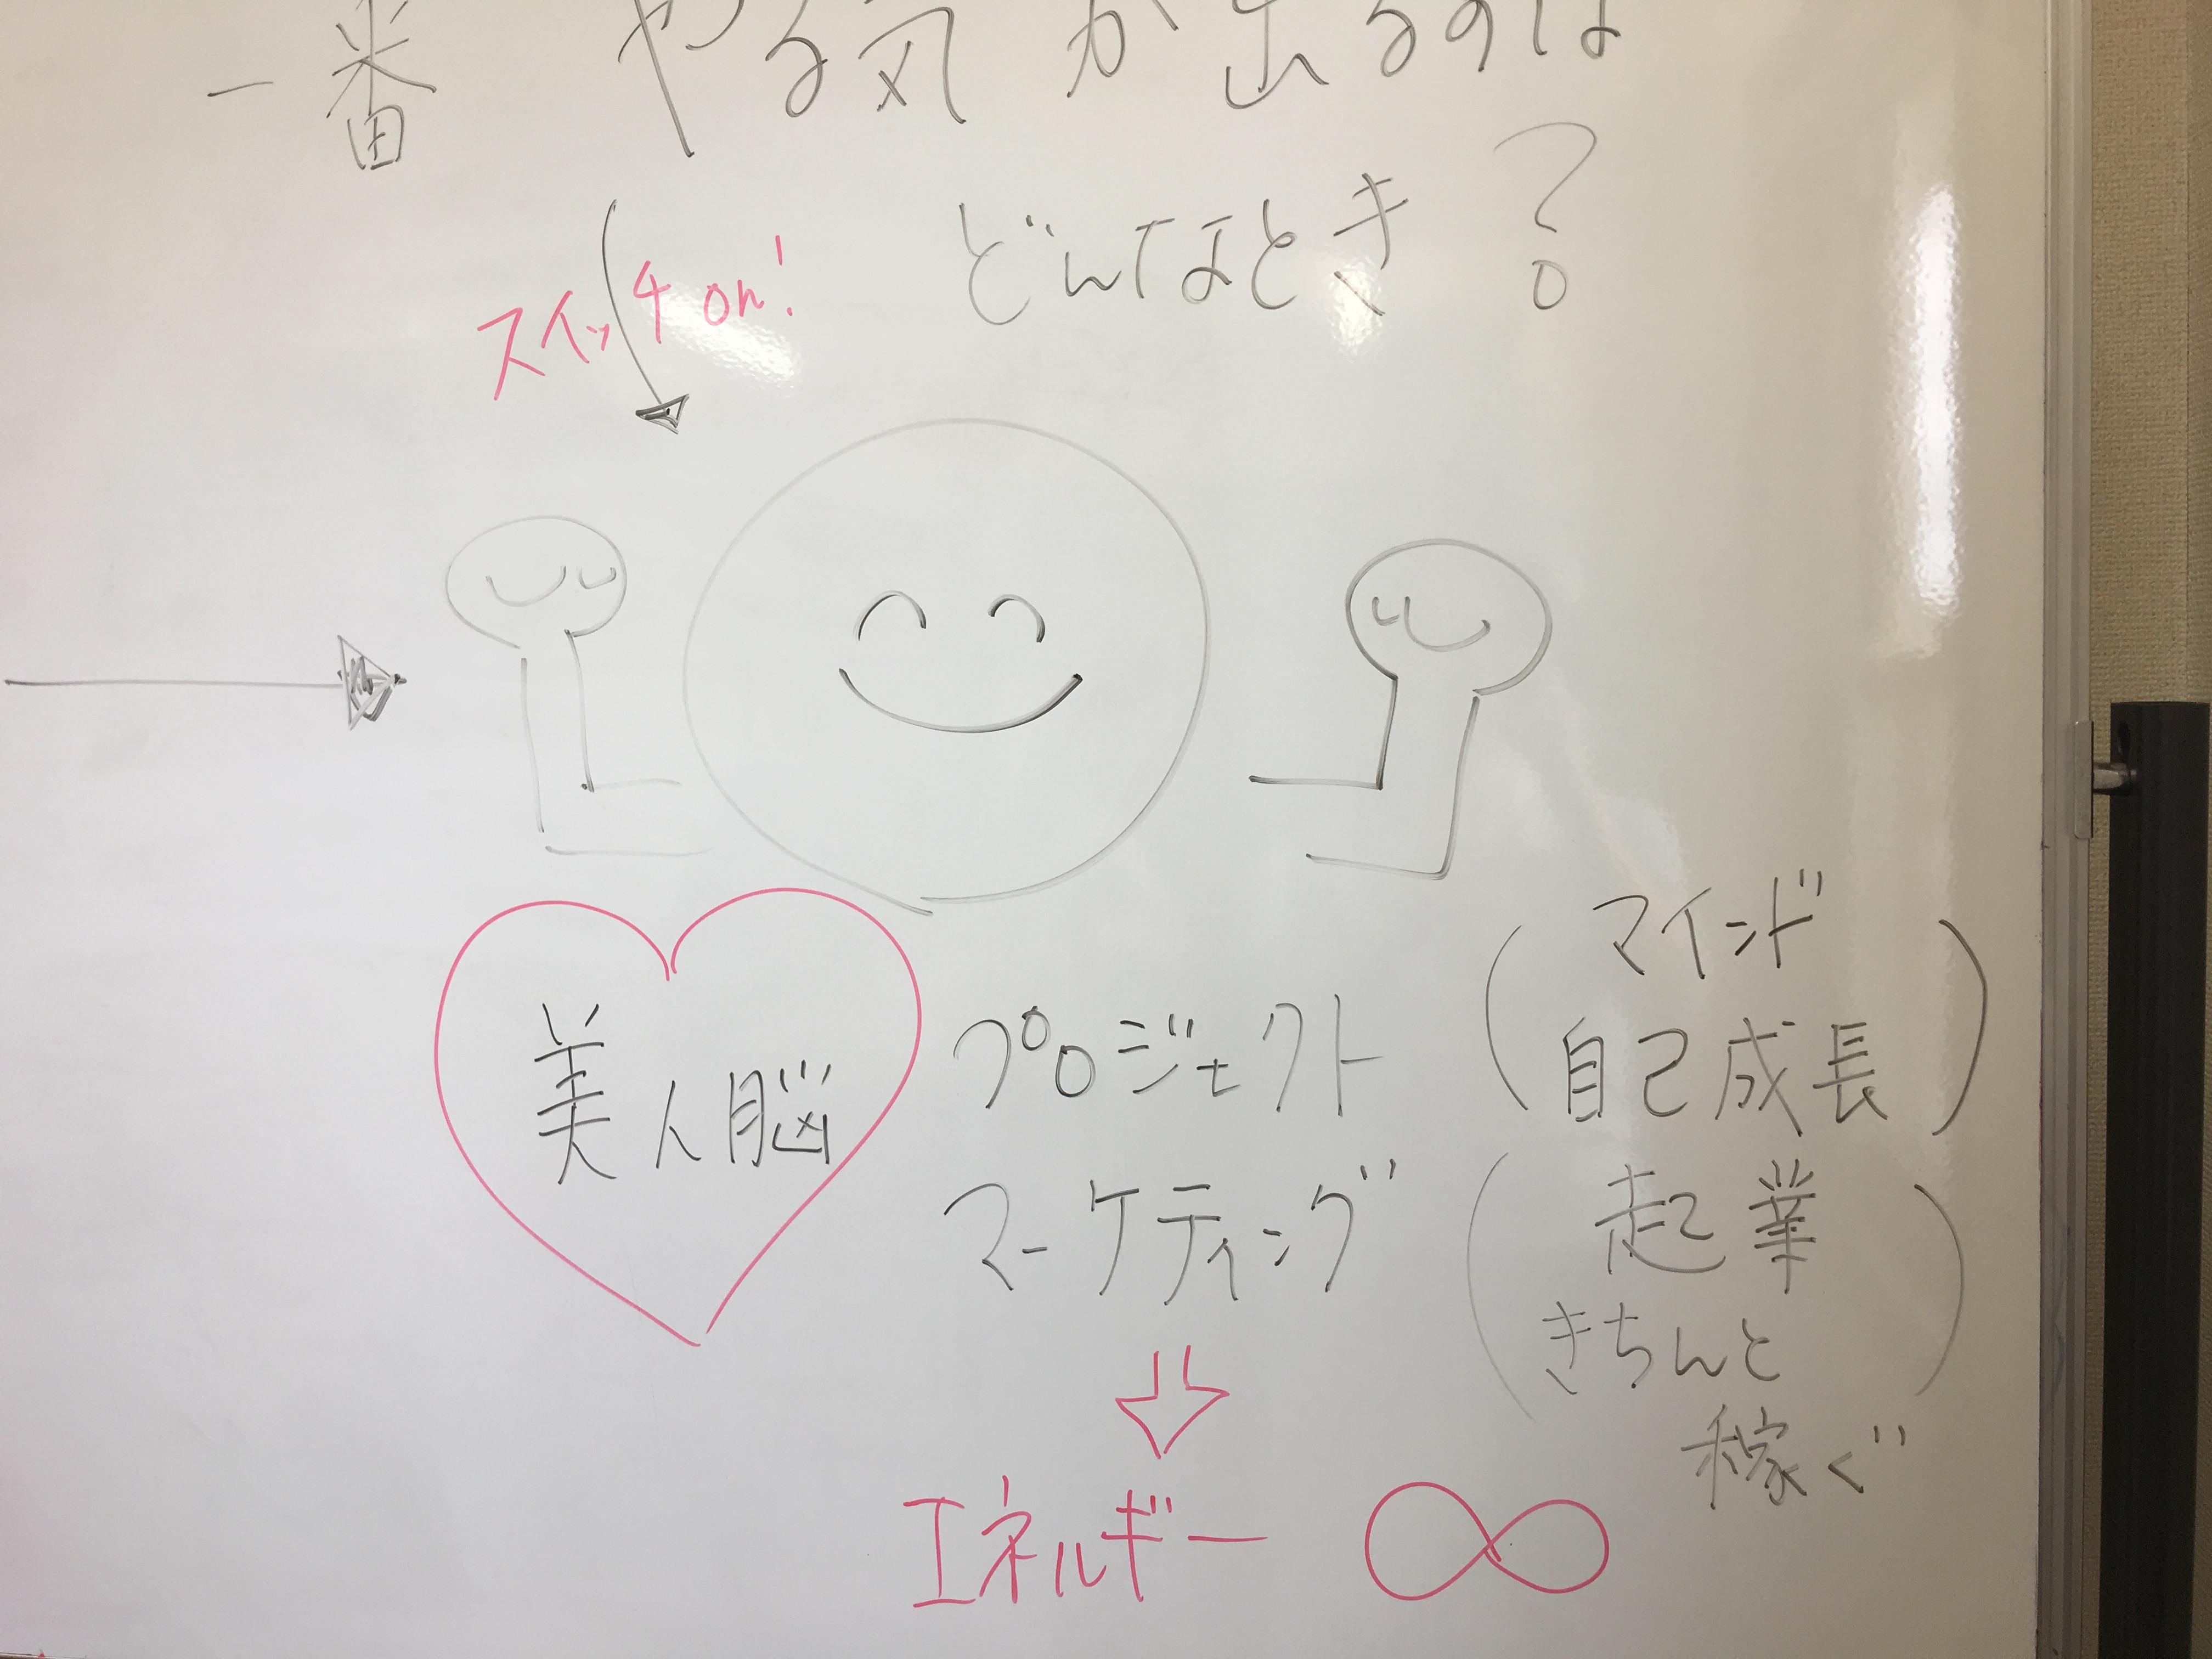 一番 やる気が出るのは
どんなとき?
スイッチon!
美人脳
プロジェクト
(マインド
自己成長)
マーケティング
(起業
きちんと
稼ぐ)
エネルギー ∞